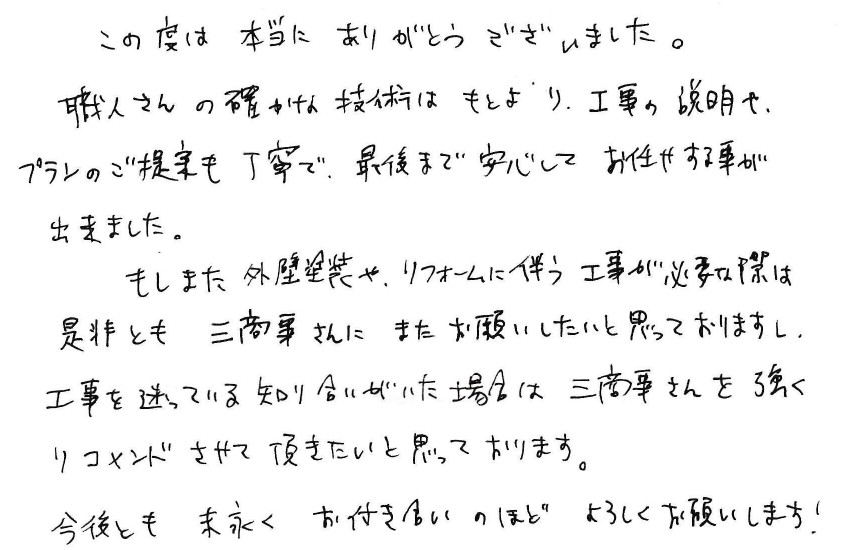 この度は 本当に ありがとう ございました。
職人さんの確かな技術はもとより、工事の説明や、
プランのご提案も丁寧で、最後まで安心して お任せする事が
出来ました。
もしまた外壁塗装や、リフォームに伴う工事が必要な際は
是非とも 三商事さんに またお願いしたいと思っておりますし、
工事を迷っている知り合いがいた場合は 三商事さんを強く
リコメンドさせて頂きたいと思っております。
今後とも 末永く お付き合いのほど よろしくお願いします!